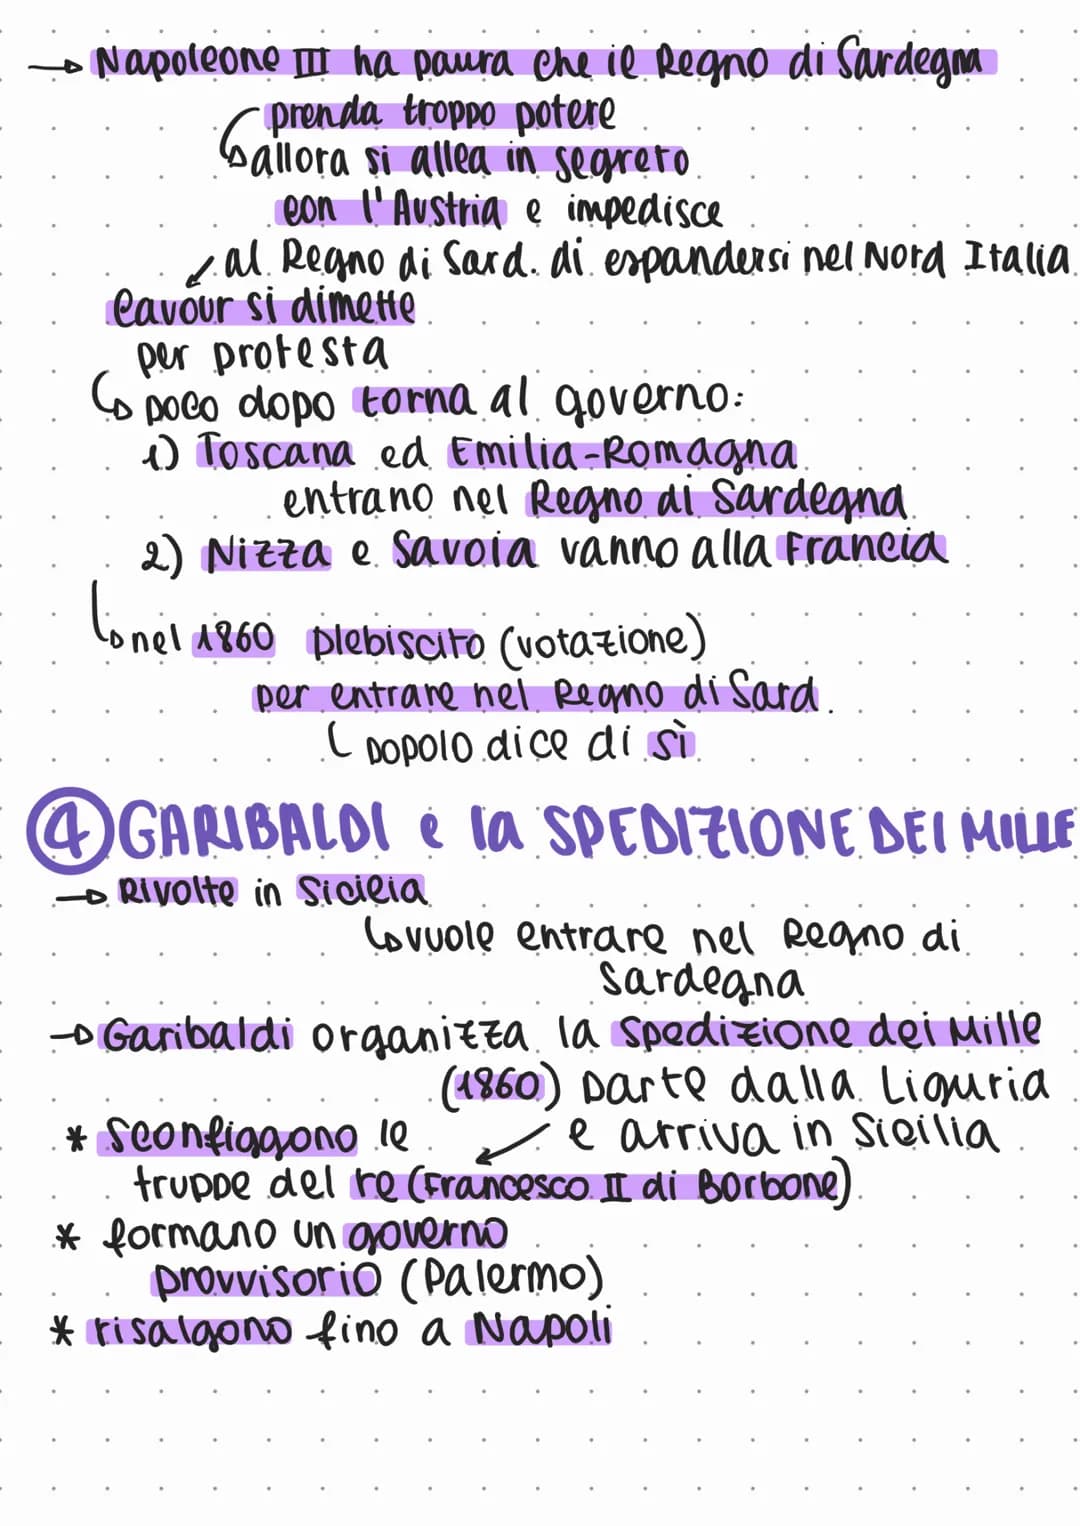 → Napoleone III ha paura che il Regno di Sardegna
prenda troppo potere
↳ allora si allea in segreto
con l'Austria e impedisce
al Regno di Sard. di espandersi nel Nord Italia
Cavour si dimette
per protesta
↳ poco dopo torna al governo:
1) Toscana ed Emilia-Romagna
entrano nel Regno di Sardegna
2) Nizza e Savoia vanno alla Francia
↳ nel 1860 plebiscito (votazione)
per entrare nel Regno di Sard.
popolo dice di sì
4 GARIBALDI e la SPEDIZIONE DEI MILLE
→ Rivolte in Sicilia
↳ vuole entrare nel Regno di
Sardegna
→ Garibaldi organizza la spedizione dei Mille
(1860) parte dalla Liguria
e arriva in Sicilia
* sconfiggono le
truppe del re (Francesco II di Borbone)
* formano un governo
provvisorio (Palermo)
* risalgono fino a Napoli